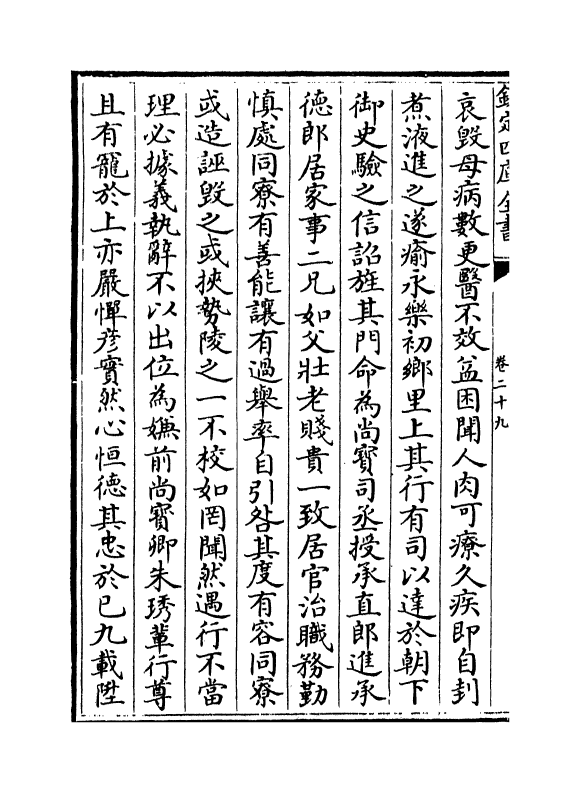 欽定四庫全書
卷二十九
哀毀母病數更醫不效益困聞人肉可療久疾即自刲
煮液進之遂瘉永樂初鄉里上其行有司以達於朝下
御史驗之信詔旌其門命為尚寳司丞授承直郎進承
徳郎居家事二兄如父壯老賤貴一致居官治職務勤
慎處同寮有善能讓有過舉率自引咎其度有容同寮
或造誣毀之或挾勢陵之一不校如罔聞然遇行不當
理必據義執辭不以出位為嫌前尚寳卿朱琇輩行尊
且有寵於上亦嚴憚彦實然心恒徳其忠於已九載陞